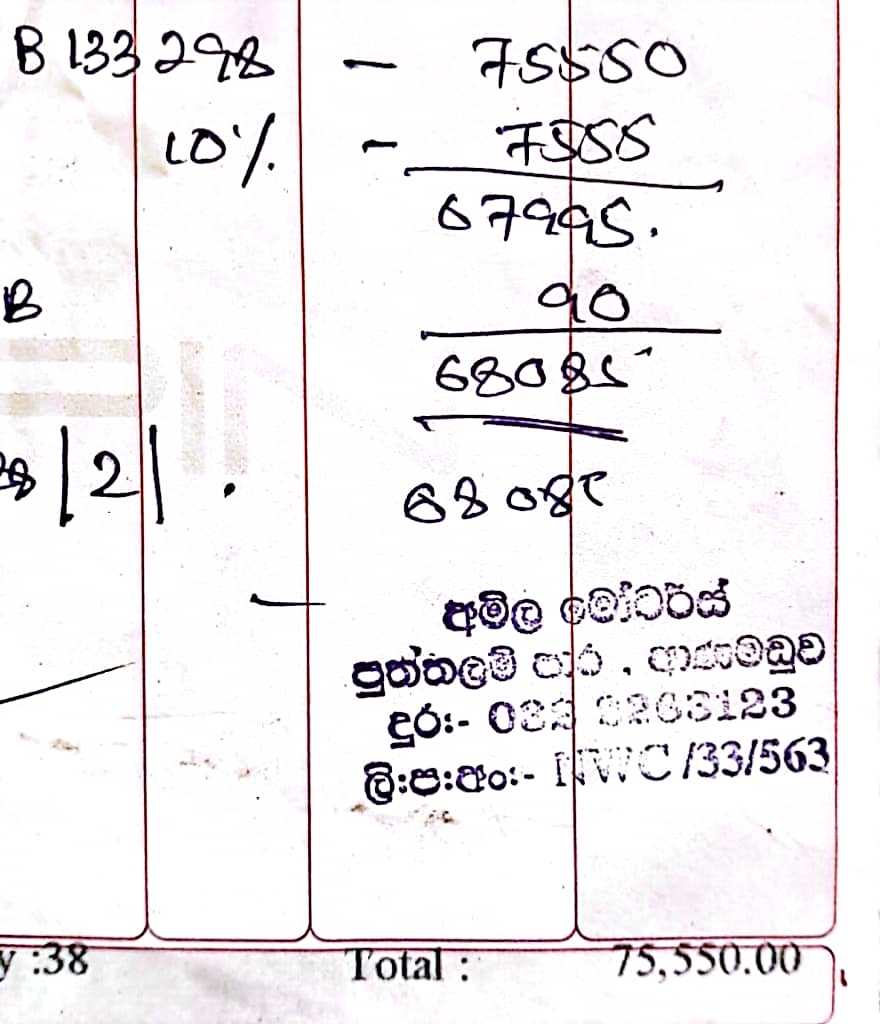 B 133298 - 75550
10% - 7555
67995.
B
90
68085
28/2/.
68085
අමිල මෝටර්ස්
පුත්තලම් පාර . ආණමඩුව
දුර:- 032 2263123
ලි:ප:අං:- NWC /33/563
y :38 Total : 75,550.00